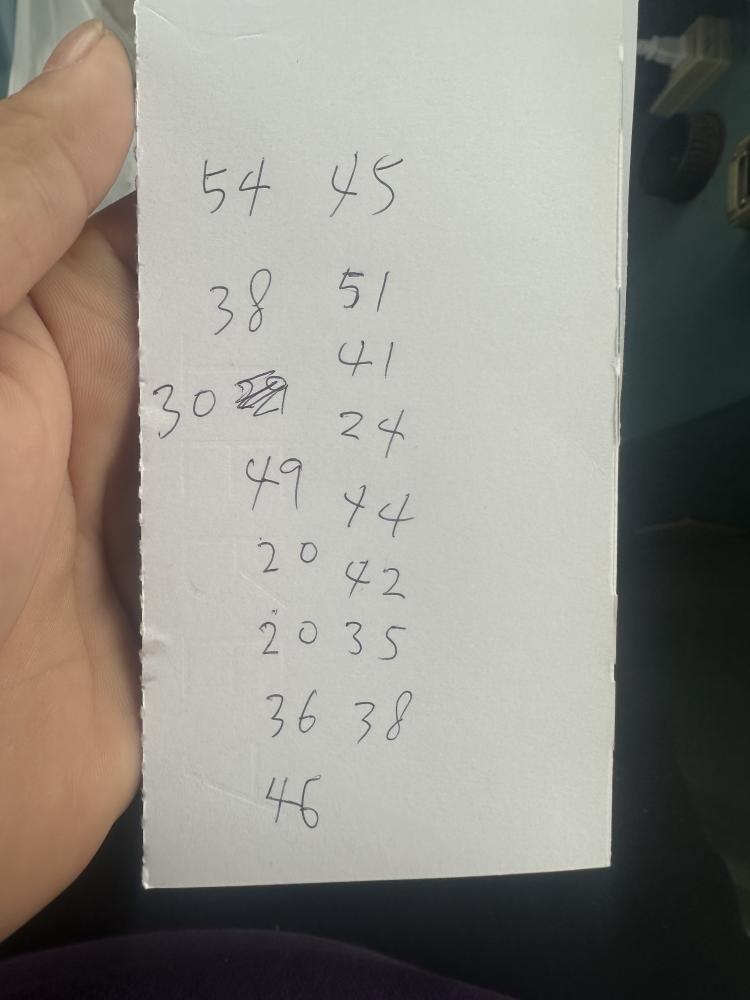 54 45
38 51
41
30
24
49
44
20
42
20 35
36 38
46